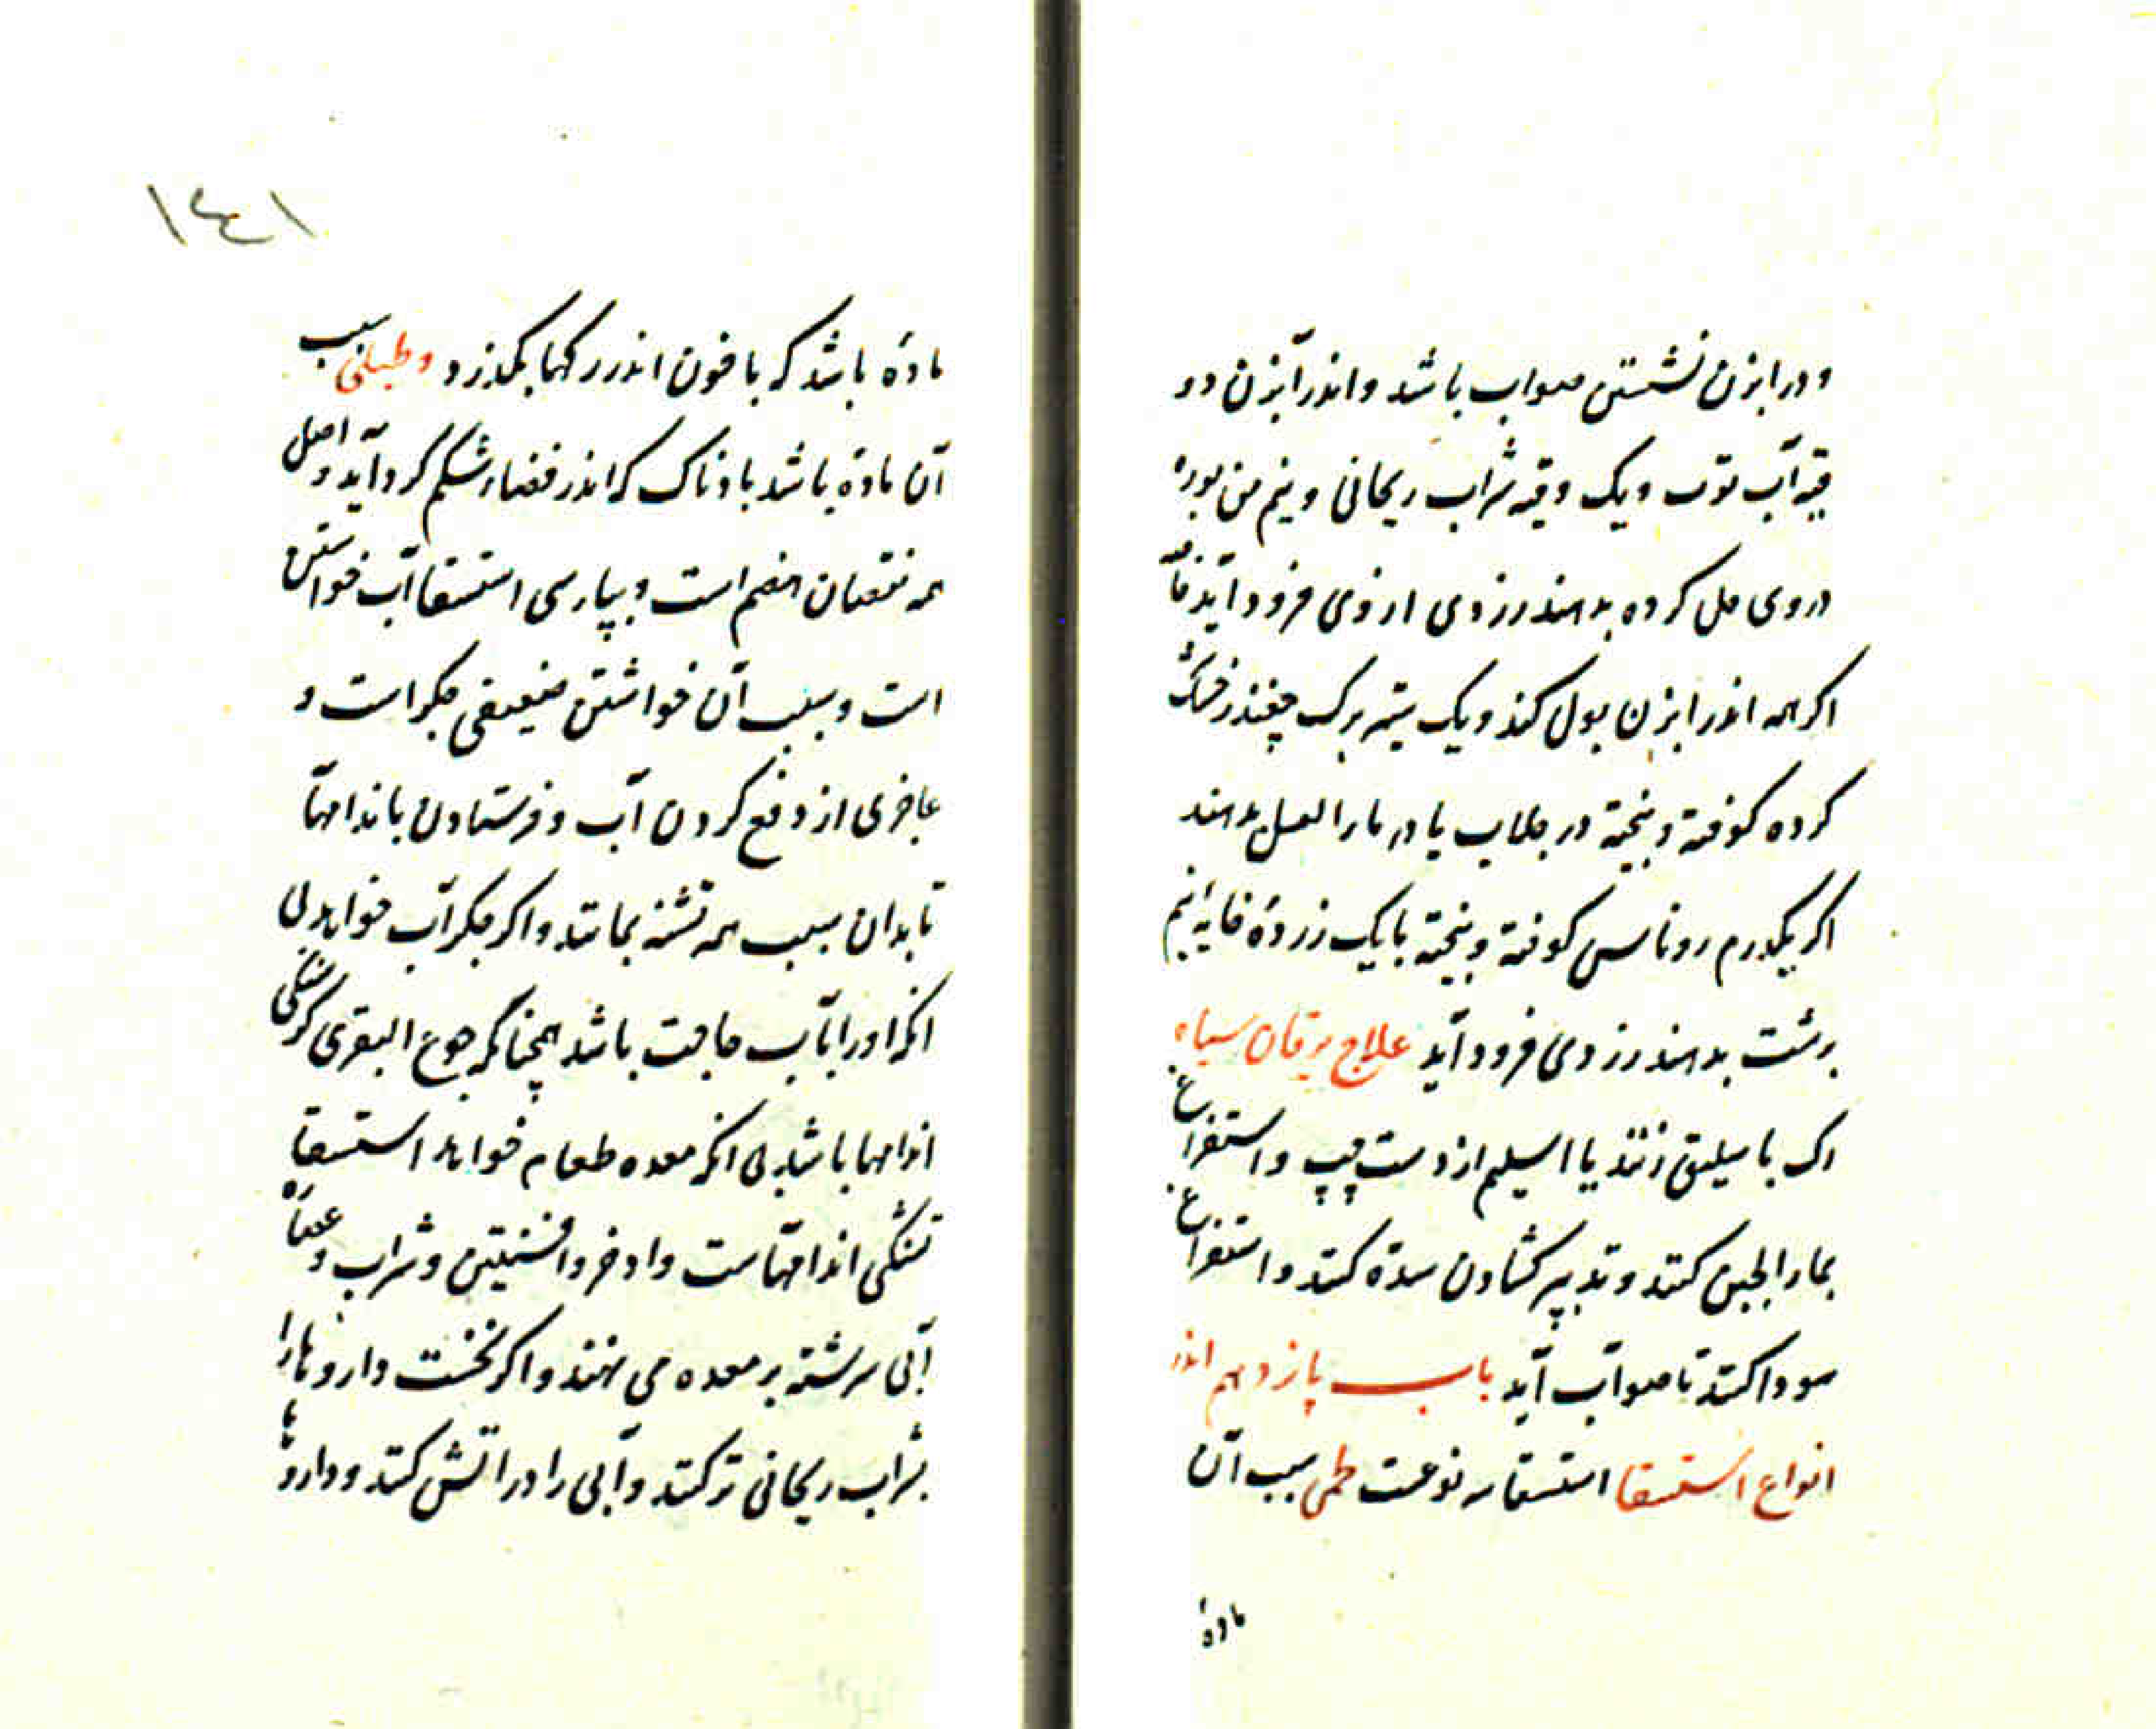 و در ابزن نشستن صواب باشد و اندر آبزن دو
وقیه آب توت و یک وقیه شراب ریحانی و نیم من بوره
در وی حل کرده بدهند زردی از وی فرود آید
اگر همه اندر ابزن بول کند و یک برک چغندر خشک
کرده کوفته و بیخته در جلاب یا در ماء العسل بدهند
اگر یکدرم روناس کوفته و بیخته با یک زردهٔ خایه نیم
برشت بدهند زردی فرود آید علاج یرقان سیاه
رک باسلیق زنند یا اسیلم از دست چپ و استفراغ
بماء الجبن کنند و تدبیر کشادن سده کنند و استفراغ
سودا کنند تا صواب آید باب پازدهم اندر
انواع استسقا استسقا سه نوعست لحمی سبب آن
مادهٔ
۱۴۱
مادهٔ باشد که با خون اندر رکها بکذرد و طبلی سبب
آن مادهٔ باشد بادناک که اندر فضاء شکم کرد آید و اصل
همه نقصان هضم است و بپارسی استسقا آب خواستن
است و سبب آن خواستن ضعیفی جکر است و
عاجزی از دفع کردن آب و فرستادن باندامها
تا بدان سبب همه تشنه بمانند و اکر جکر آب خواهد بی
انکه او را بآب حاجت باشد همچنانکه جوع البقری کرسنکی
اندامها باشد بی انکه معده طعام خواهد استسقا
تشنکی اندامهاست و اذخر و افسنتین و شراب و عصاره
آبی سرشته بر معده می نهند و اکر نخست داروها را
بشراب ریحانی تر کنند و آبی را در آتش کنند و داروها